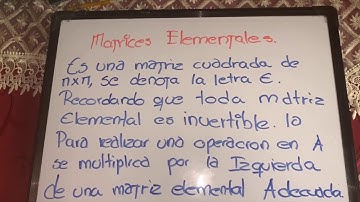 Matrices Elementales.
Es una matriz cuadrada de
nxn, se denota la letra E.
Recordando que toda matriz
Elemental es invertible. la
Para realizar una operacion en A
se multiplica por la Izquierda
de una matriz elemental Adecuada.